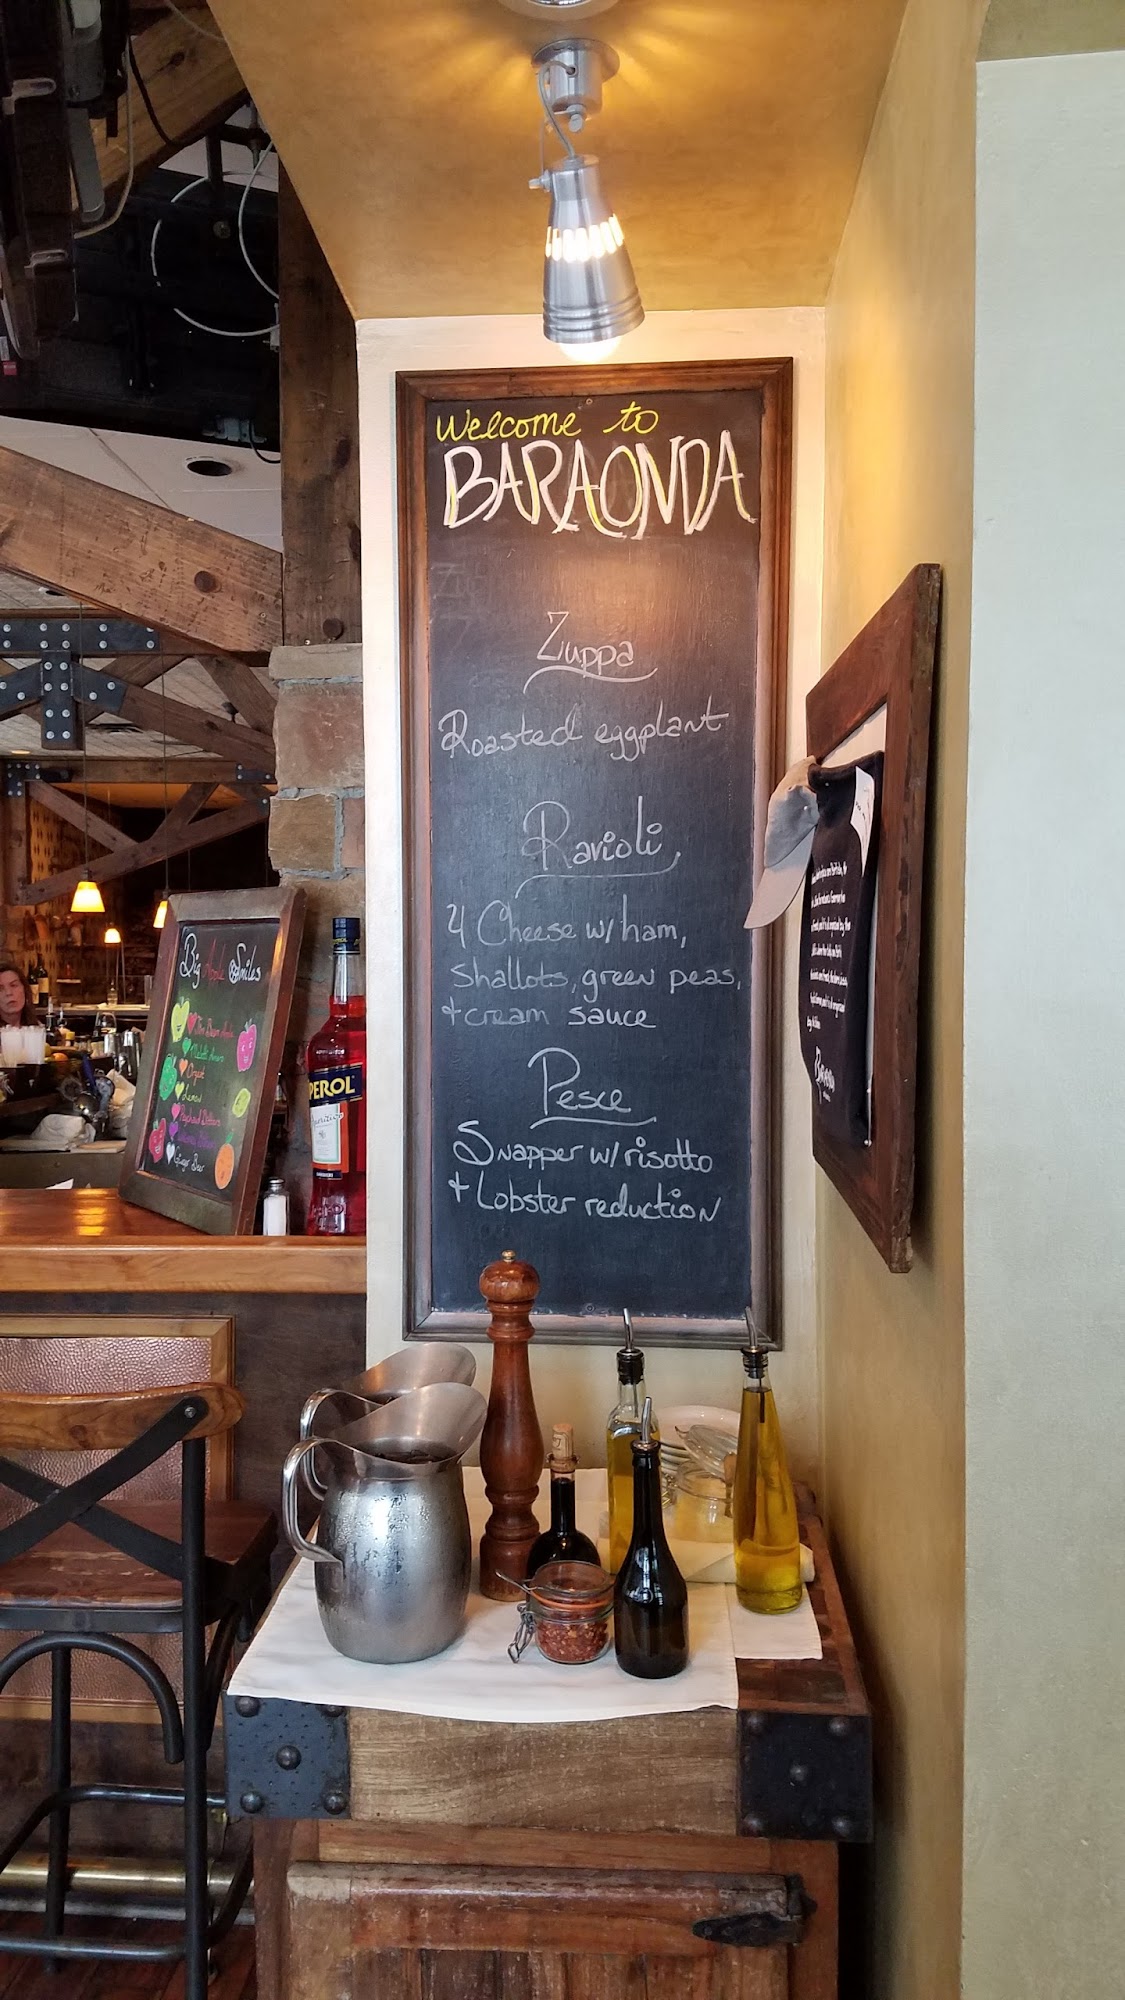 Welcome to
BARAONDA
Zuppa
Roasted eggplant
Ravioli
4 Cheese w/ ham,
Shallots, green peas,
+ cream sauce
Pesce
Snapper w/ risotto
+ Lobster reduction
Big Apple Smiles
Organic
Lemon
Ginger Beer
PEROL